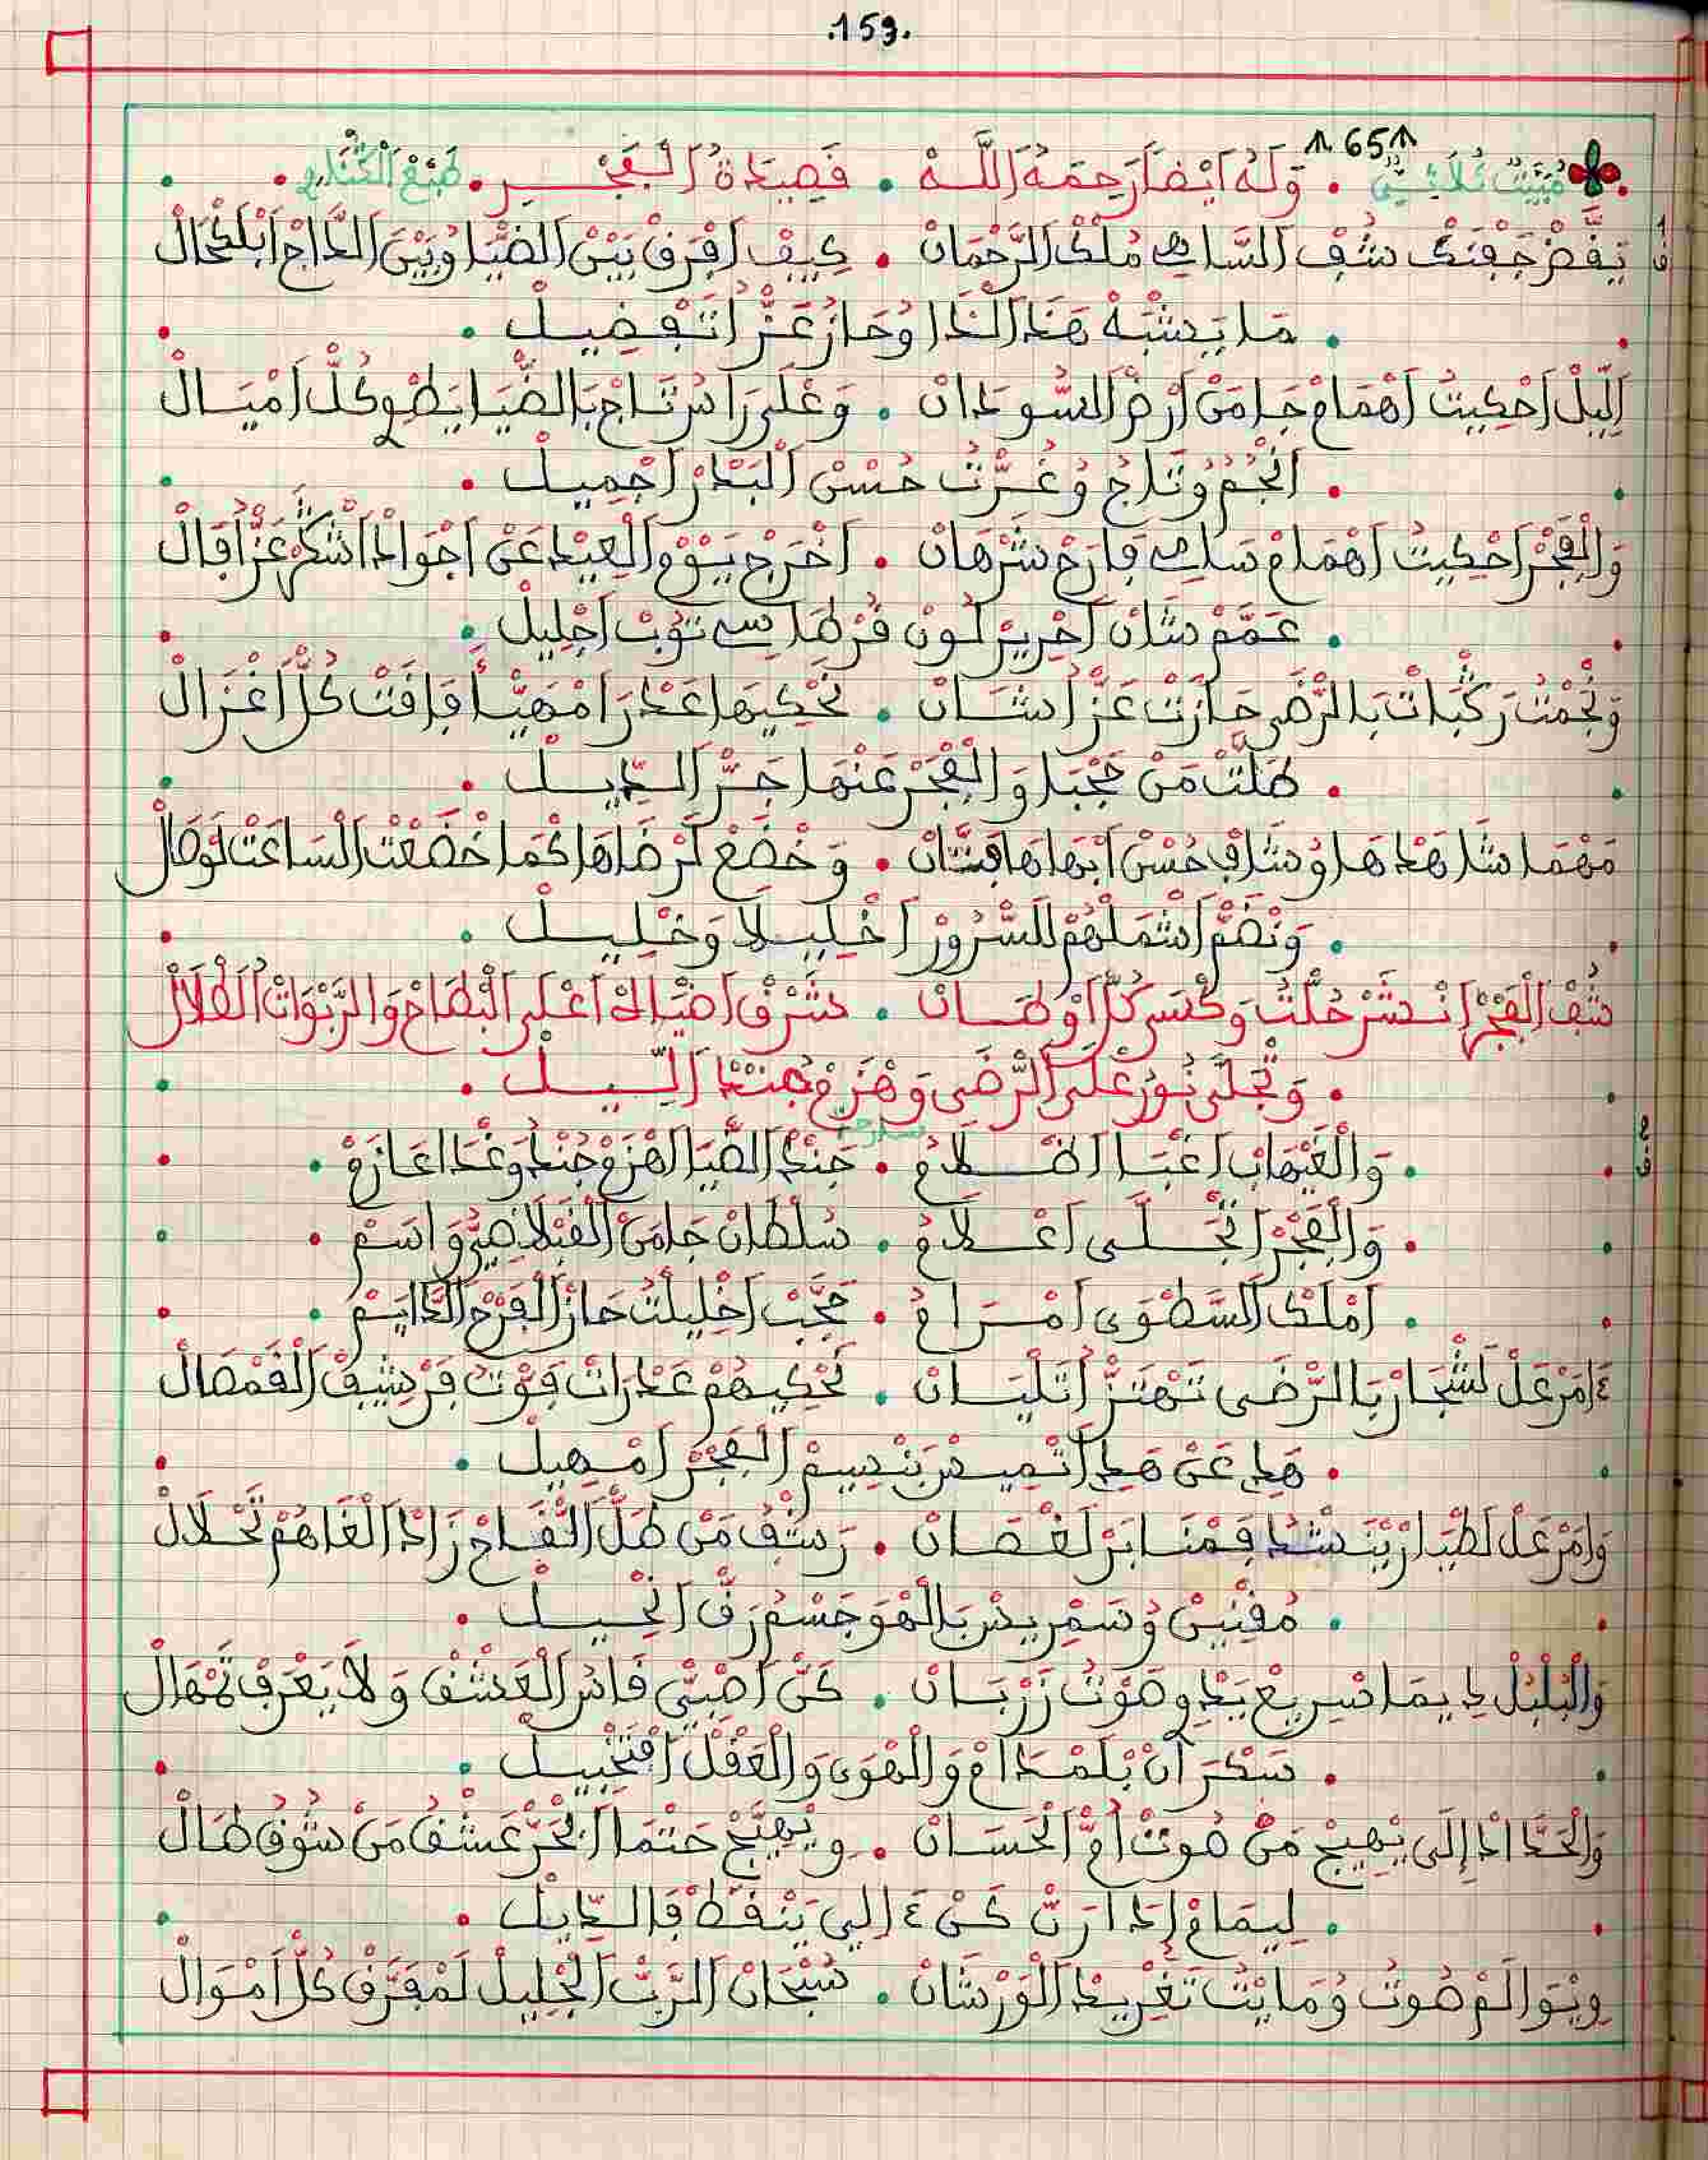 .159.
65
مبيت ثلاثي . وله ايضا رحمه الله . قصيدة الفجر . طبع
يقض جفنك شف الساهي ملك الرحمان . كيف افرق بين الضيا وبين الداج ابلكحال
. ما يشبه هذا الذا وحاز عز اتفضيل .
الليل احكيت اهمام جا من ارض السودان . وعلى راس تاج بالضيا يضوي كل اميال
. انجم وتاج وغرت حسن البدر اجميل .
والفجر احكيت اهمام سلطان . اخرج يوم العيد عن اجواد اشكر عز اقبال
. عمم شان احرير لون قرطاسي توب اجليل .
ونجمت ركبات بالرضى حازت عز الشان . نحكيها عدرا مهيا فاقت كل اغزال
. طلت من حجبا والفجر عنها جر الديل .
مهما شاهدها وشاف حسن ابهاها فتان . وخضع لرضاها كما خضعت الساعت لوصال
. ونضم اشملهم للسرور اخليلا وخليل .
شف الفجر انشر حلت وكسى كل اوطان . شرق اضياه اعلى البطاح والربوات الطلال
. وتجلى نور على الرضى وهزم جند الليل .
. والغيهاب اغبا اضلام . جند الضيا اهزم جند وغدا عازم .
. والفجر اتجلى اعلام . سلطان جا من القبلا واسم .
. املك السطوى امرام . حجب اخليلت حاز الفرح الدايم .
امر عل لشجار بالرضى تهتز اتليان . نحكيهم عدرات فوت فرشيف القمصال
. هد عن هد اتميس بنسيم الفجر امهيل .
وامر عل لطيار بنشد فمنابر لغصان . رشف من طل القاح زاد الغاهم تحلال
. مفنين وسمريس بالهو جسم رق انحيل .
والبلبل ديما سريع يبدي صوت زربان . كن اصبي قاس العشق ولا يعرف تمهال
. سكران بلمدام والهوى والعقل اقتبيل .
والحداد إلى يهيج من صوت ام الحسان . ويهيج حتما الحر عشق من شوق طال
. ليمام إدا رن كن ء اللي ينقط فالديل .
وبوالم صوت ومايت تغريد الورشان . سبحان الرب الجليل لمفرق كل اموال